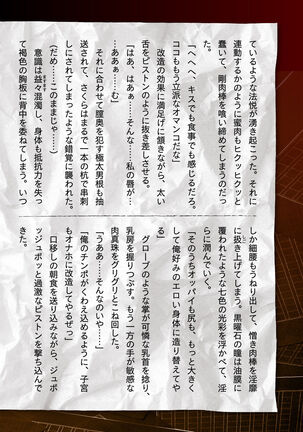 ているような法悦が湧き起こった。それに
連動するかのように蜜肉もヒクッヒクッと
蠢いて、剛肉棒を喰い締めてしまうのだっ
た。
「へへへ、キスでも食事でも感じるだろ。
ココもう立派なオマンコだな」
改造の効果に満足げに頷きながら、太い
舌をピストンのように抜き差しさせる。
「はあ、はあぁ……そんな……私の唇が…
…ああぁ……む」
それに合わせて膣奥を犯す極太男根も抽
送されて、さくらはまるで一本の杭で串刺
しにされてしまったような錯覚に襲われた。
(だめ……このままじゃ……)
意識は益々混濁し、身体も抵抗力を失っ
て褐色の胸板に背中を委ねてしまう。いつ
しか細腰もうねり出して、憎き肉棒を淫靡
に抜き上げてしまう。黒曜石の瞳は油膜に
覆われたような七色の光彩を浮かべて、淫
らに潤んでいく。
「そのうちオッパイも尻も、もっと大きく
して俺好みのエロい身体に造り替えてや
る」
グローブのような掌が可憐な乳首を捻り、
乳房を握りつぶす。もう一方の手が敏感な
肉真珠をグリグリとこね回した。
「うああ……そんなのいや……」
「俺のチンポがくわえ込めるように、子宮
もオナホに改造してやるぜっ」
口移しの朝食を送り込みながら、ジュボ
ッジュボッと過激なピストンを撃ち込んで
きた。